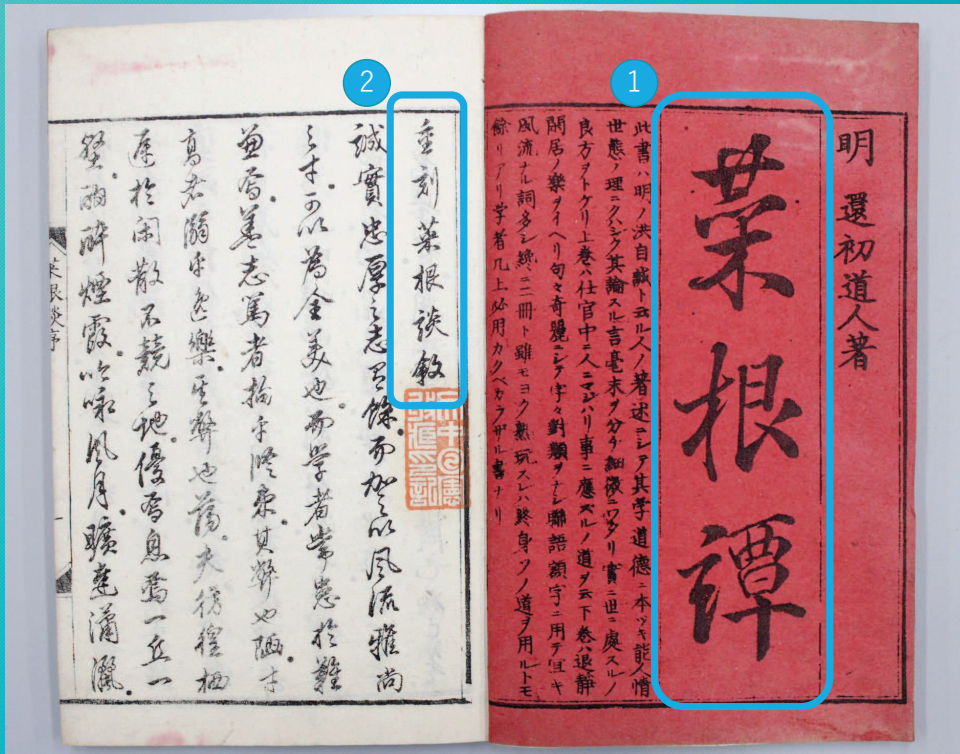 明 還初道人著
1
菜根譚
此書ハ明ノ洪自誠ト云ル人ノ著述ニシテ其学道德ニ本ツキ能人情
世態ノ理ニクハシク其論スル言毫末ヲ分チ細微ニワタリ實ニ世ニ處スルノ
良方ヲトケリ上巻ハ仕官中ニ人ニマジハリ事ニ應ズルノ道ヲ云下巻ハ退静
閑居ノ樂ヲイヘリ句々奇麗ニシテ字々對類ヲナシ聯語額字ニ用テ宜キ
風流ナル詞多シ纔ニ二冊ト雖モヨク熟玩スレハ終身ソノ道ヲ用ルトモ
餘リアリ学者几上必用カクベカラザル書ナリ
2
重刻菜根談敘
誠實忠厚之志有餘而加以風流雅尚
之才可以為全美也而学者常患於難
兼焉蓋志篤者拙乎修束其弊也陋才
高者溺乎逸樂其弊也蕩夫彷徨栖
遲於闲散不競之地優焉息焉一丘一
壑雨醉煙霞吟咏風月曠達瀟灑
菜根談序